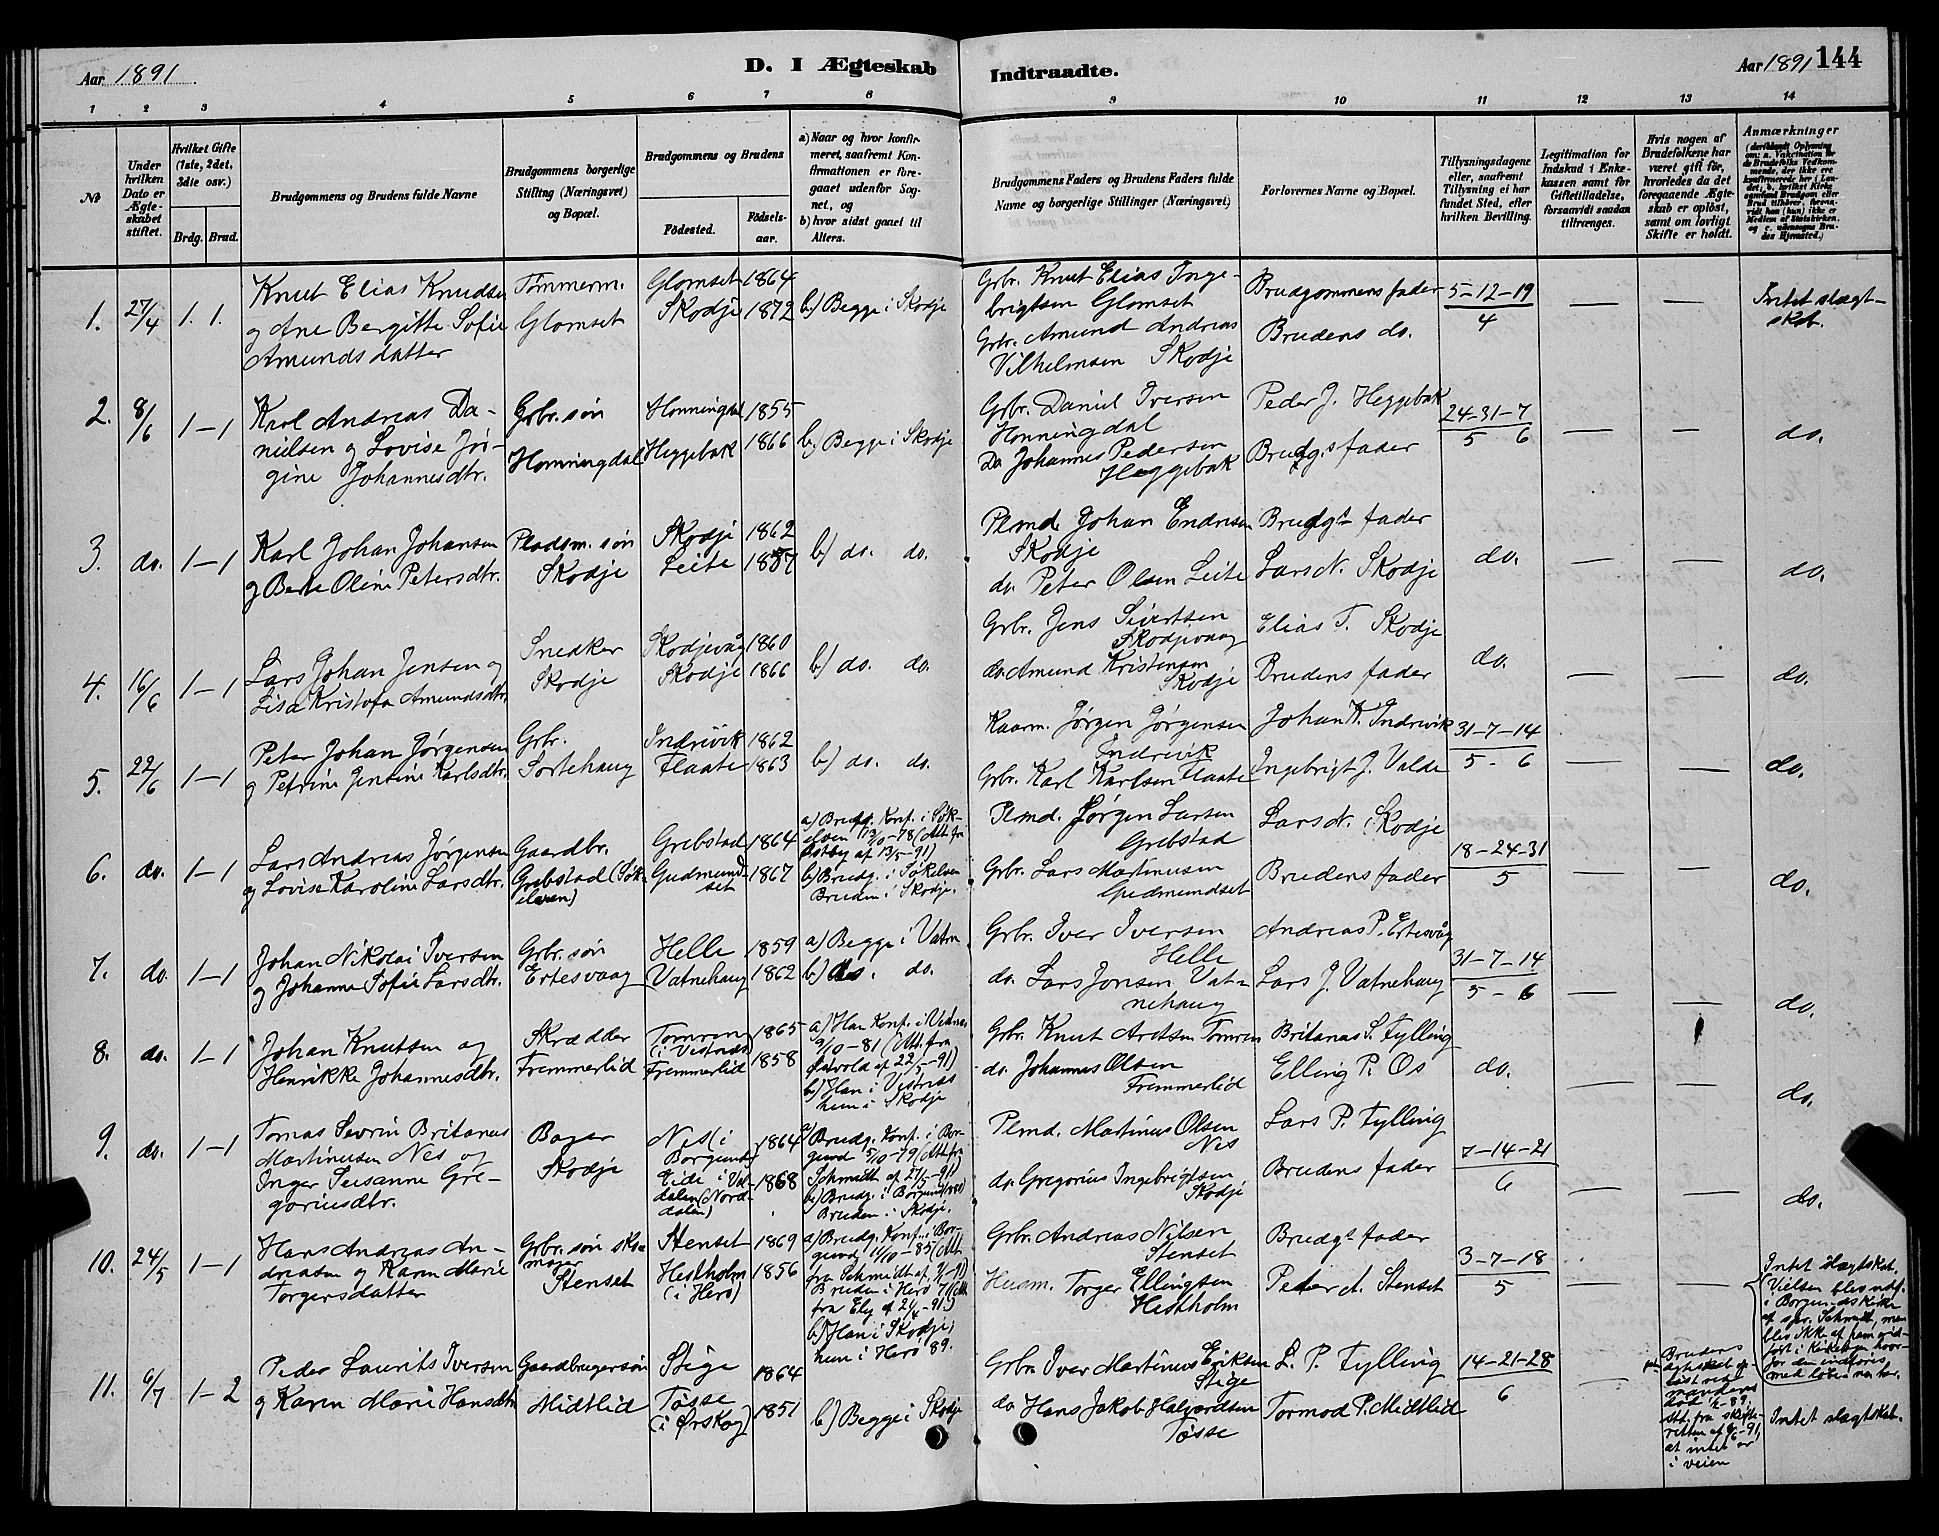 Aar 1891
D. I Ægteskab
Indtraadte.
Aar 1891 144
1 2 3 4 5 6 7 8 9 10 11 12 13 14
No
Under hvilken Dato er Ægteskabet stiftet.
Hvilket Gifte (1ste, 2det, 3die osv.)
Brdg. Brud.
Brudgommens og Brudens fulde Navne
Brudgommens borgerlige Stilling (Næringsvei) og Bopæl.
Brudgommens og Brudens
Fødested.
Fødselsaar.
a) Naar og hvor konfirmeret, saafremt Konfirmationen er foregaaet udenfor Sognet, og
b) hvor sidst gaaet til Alters.
Brudgommens Faders og Brudens Faders fulde Navne og borgerlige Stillinger (Næringsvei)
Forlovernes Navne og Bopæl.
Tillysningsdagene eller, saafremt Tillysning ei har fundet Sted, efter hvilken Bevilling.
Legitimation for Indskud i Enkekassen samt for Giftetilladelse, forsaavidt saadan tiltrænges.
Hvis nogen af Brudefolkene har været gift før, hvorledes da det foregaaende Ægteskab er opløst, samt om lovligt Skifte er holdt.
Anmærkninger (deriblandt Oplysning om: a. Vakcination for de Brudefolks Vedkommende, der ikke ere konfirmerede her i Landet; b. hvilket Kirkesamfund Brudgom eller Brud tilhører, forsaavidt han (hun) ikke er Medlem af Statskirken, og c. udensogns Brudes Hjemsted.)
1. 27/4 1. 1.
Knut Elias Knudsen
og Ane Bergitte Sofie
Amundsdatter
Tømmerm.
Glomset
Glomset 1864
Skodje 1872
b) Begge i Skodje
Grbr. Knut Elias Inge-
brigtsen Glomset
Grbr. Amund Andreas
Vilhelmsen Skodje
Brudgommens fader
Brudens do.
5-12-19
4
— —
Intet slægt-
skab.
2. 8/6 1-1
Karl Andreas Da-
nielsen og Lovise Jør-
gine Johannesdtr.
Grbr. søn
Honningdal
Honningdal 1855
Heggebak 1866
b) Begge i Skodje
Grbr. Daniel Iversen
Honningdal
Do Johannes Pedersen
Heggebak
Peder J. Heggebak
Brudg.s fader
24-31-7
5 6
— —
do.
3. do. 1-1
Karl Johan Johansen
og Berte Oline Petersdtr.
Pladsm. søn
Skodje
Skodje 1862
Leite 1857
b) do. do.
Plmd. Johan Endresen
Skodje
do. Peter Olsen Leite
Brudgs fader
Lars N. Skodje
do.
— —
do.
4. 16/6 1-1
Lars Johan Jensen og
Lisa Kristofa Amundsdtr.
Snedker
Skodje
Skodjevåg 1860
Skodje 1866
b) do. do.
Grbr. Jens Sivertsen
Skodjevaag
do. Amund Kristensen
Skodje
Elias T. Skodje
Brudens fader
do.
— —
do.
5. 22/6 1-1
Peter Johan Jørgensen
og Petrine Jensine Karlsdtr.
Grbr.
Sortehaug
Indrevik 1862
Flaate 1863
b) do. do.
Kaarm. Jørgen Jørgensen
Indrevik
Grbr. Karl Karlsen Flaate
Johan K. Indrevik
Ingebrigt J. Valde
31-7-14
5-6
— —
do.
6. do. 1-1
Lars Andreas Jørgensen
og Lovise Karoline Larsdtr.
Gaardbr.
Grebstad (Søk-
elven)
Grebstad 1864
Gudmund-
set 1867
a) Brudg. Konf. i Søk-
elven 13/10-78 (Att. fra
Østby af 13/5-91)
b) Brudg. i Søkelven
Bruden i Skodje.
Plmd. Jørgen Larsen
Grebstad
Grbr. Lars Martinusen
Gudmundset
Lars N. Skodje
Brudens fader
18-24-31
5
— —
do.
7. do. 1-1
Johan Nikolai Iversen
og Johanne Sofie Larsdtr.
Grbr. søn
Ertesvaag
Helle 1859
Vatnehaug 1862
a) Begge i Vatne
b) do. do.
Grbr. Iver Iversen
Helle
do. Lars Jonsen Vat-
nehaug
Andreas P. Ertesvåg
Lars J. Vatnehaug
31-7-14
5-6
— —
do.
8. do. 1-1
Johan Knutsen og
Henrikke Johannesdtr.
Skrædder
Fremmerlid
Tomren
(i Vestnæs) 1865
Fremmerlid 1858
a) Han Konf. i Vestnæs
9/10-81 (Att. fra
af 22/5-91)
b) Han i Vestnæs
hun i Skodje
Grbr. Knut Arntsen Tomren
do. Johannes Olsen
Fremmerlid
Britanus S. Fylling
Elling P. Os
do.
— —
do.
9. do. 1-1
Tomas Sevrin Britanus
Martinusen Nes og
Inger Susanne Gre-
goriusdtr.
Bager
Skodje
Nes (i
Borgund) 1864
Eide i Val-
dalen (Nord-
dalen) 1868
a) Brudg. Konf. i Bor-
gund 5/10-79 (Att. fra
Schmidt af 27/5-91)
b) Brudg. i Borgund
Bruden i Skodje.
Plmd. Martinus Olsen
Nes
do. Gregorius Ingebrigtsen
Skodje
Lars P. Fylling
Brudens fader
7-14-21
6
— —
do.
10. 24/5 1-1
Hans Andreas An-
dreasen og Karen Marie
Torgersdatter
Grbr. søn sko-
mager
Stenset
Stenset 1869
Hestholm
(i Herø) 1856
a) Brudg. Konf. i Bor-
gund 11/10-85 (Att.
fra Schmidt af
Bruden i Herø
fra
b) Han i Skodje,
hun i Herø 89.
Grbr. Andreas Nilsen
Stenset
Husm. Torger Ellingsen
Hestholm
Brudgs fader
Peder A. Stenset
3-7-18
5
— —
Intet slægtskab.
(Vielsen blev udf.
i Borgunds Kirke
af spr. Schmidt, men
blev ikke af ham ind-
ført i Kirkebogen hvor-
for den indføres
med løbe no. her.
11. 6/7 1-2
Peder Laurits Iversen
og Karen Marie Hansdtr.
Gaardbrugersøn
Midtlid
Stige 1864
Tøsse
(i Ørskog) 1851
b) Begge i Skodje
Grbr. Iver Martinus Eriksen
Stige
do Hans Jakob Halvardsen
Tøsse
L. P. Fylling
Tormod P. Midtlid
14-21-28
6
—
Brudens
ægteskab op-
løst ved
mandens
død
Att. fra skifte-
retten af 9/6-91,
at intet er
i veien
Intet slægtskab.